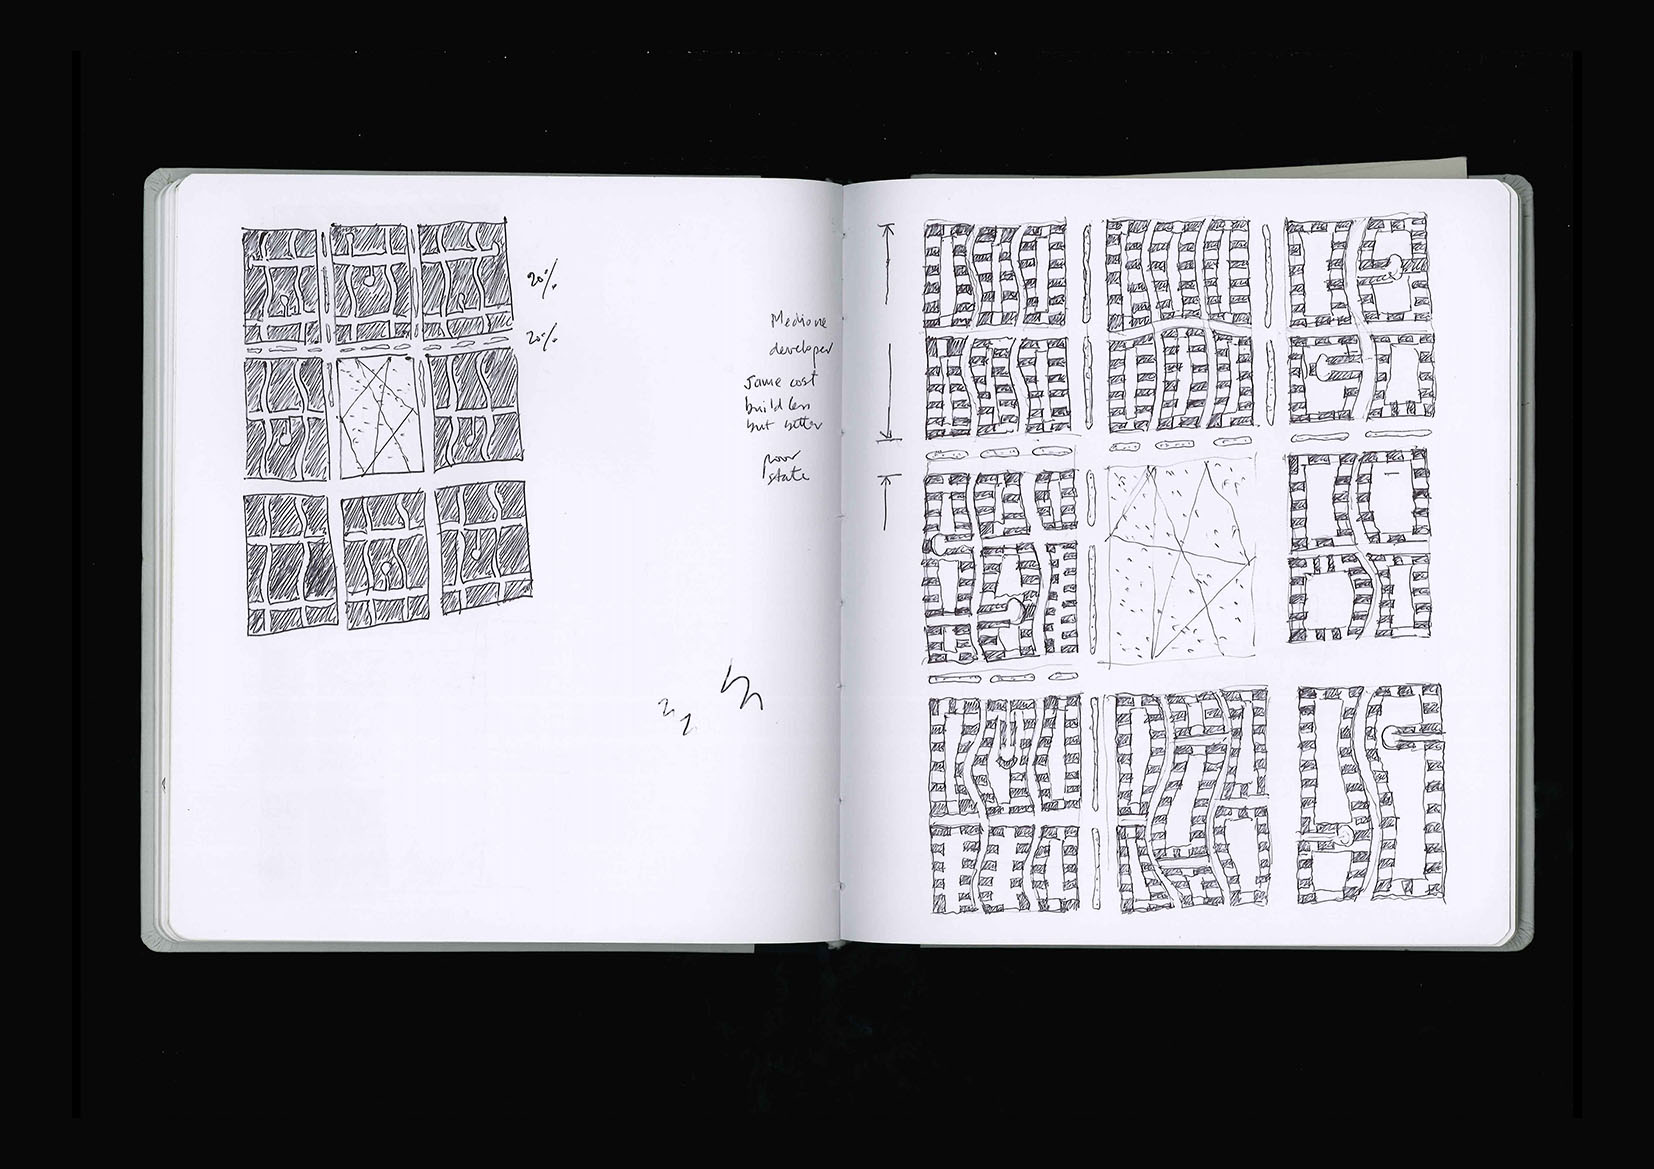 20%
20%
Mediocre
developer
same cost
build less
but better
poor
state